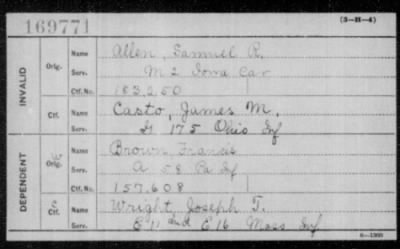 169771
(3-H-4)
INVALID
Orig.
Name Allen, Samuel R.
Serv. M 2 Iowa Cav
Ctf. No. 183,250
Ctf.
Name Casto, James M.
Serv. G 175 Ohio Inf
DEPENDENT
Orig.
Name Brown, Francis
Serv. A 58 Pa Inf
Ctf. No. 157.608
Ctf.
Name Wright, Joseph T.
Serv. E 11 and E 16 Mass Inf